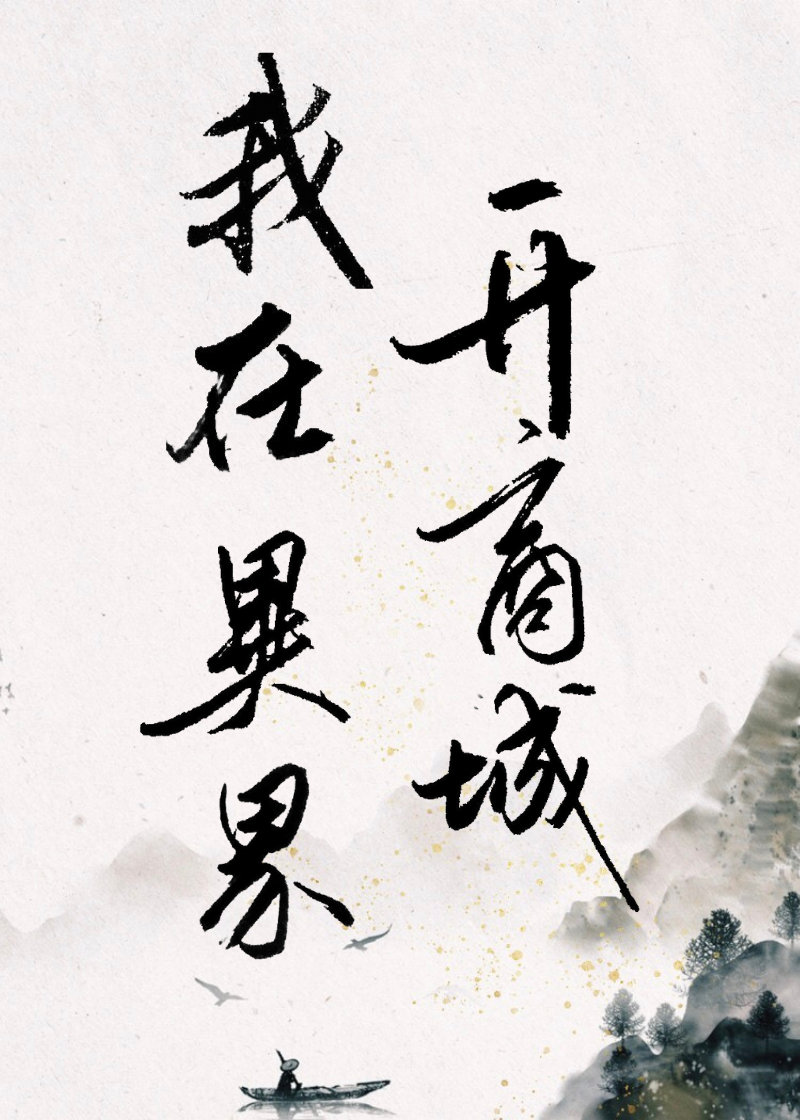 我在異界
开商城